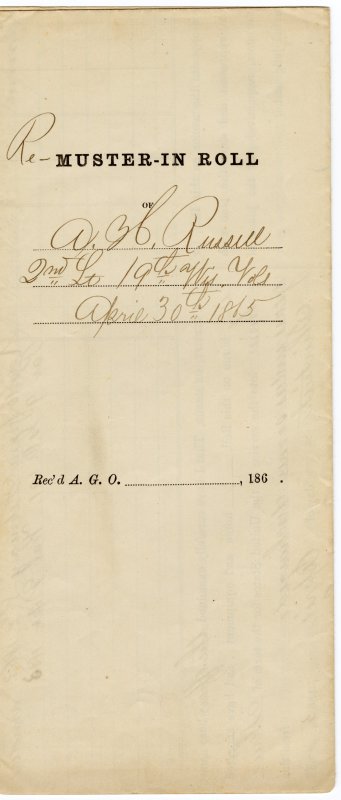 Re- MUSTER-IN ROLL
OF
A. H. Russell
2nd Lt 19th Wis. Vols
April 30th 1865
Rec'd A. G. O. , 186 .